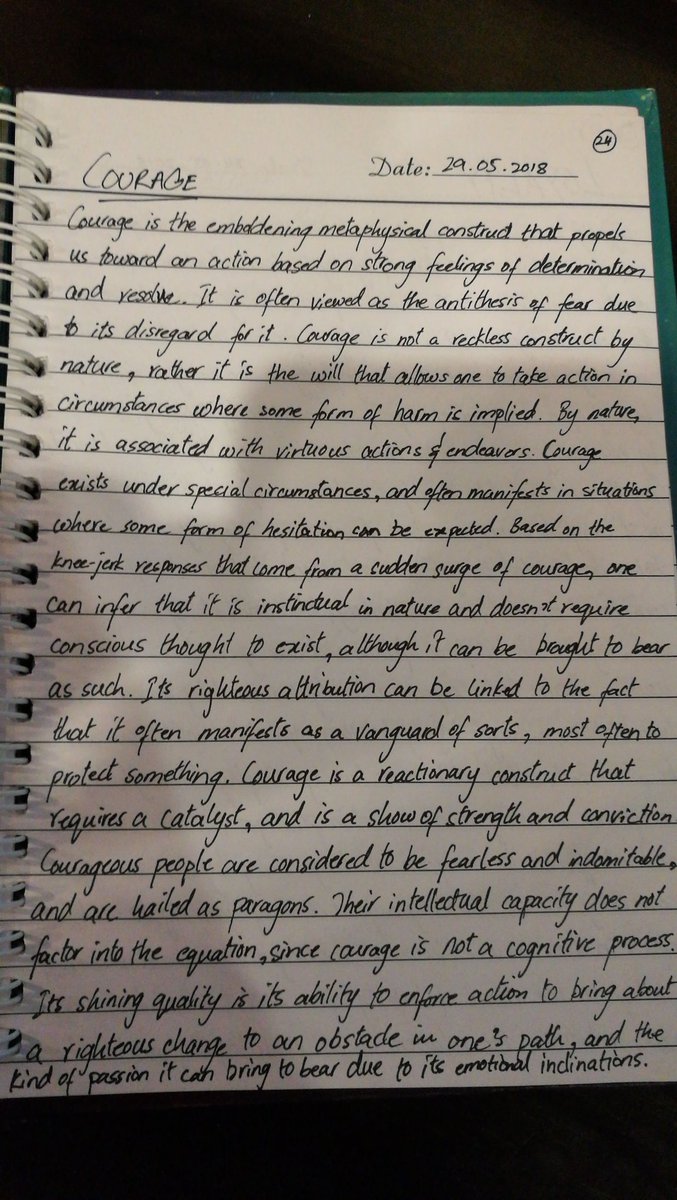 24
COURAGE Date: 29.05.2018
Courage is the emboldening metaphysical construct that propels
us toward an action based on strong feelings of determination
and resolve. It is often viewed as the antithesis of fear due
to its disregard for it. Courage is not a reckless construct by
nature, rather it is the will that allows one to take action in
circumstances where some form of harm is implied. By nature,
it is associated with virtuous actions & endeavors. Courage
exists under special circumstances, and often manifests in situations
where some form of hesitation can be expected. Based on the
knee-jerk responses that come from a sudden surge of courage, one
can infer that it is instinctual in nature and doesn't require
conscious thought to exist, although it can be brought to bear
as such. Its righteous attribution can be linked to the fact
that it often manifests as a vanguard of sorts, most often to
protect something. Courage is a reactionary construct that
requires a catalyst, and is a show of strength and conviction
Courageous people are considered to be fearless and indomitable,
and are hailed as paragons. Their intellectual capacity does not
factor into the equation, since courage is not a cognitive process.
Its shining quality is its ability to enforce action to bring about
a righteous change to an obstacle in one's path, and the
kind of passion it can bring to bear due to its emotional inclinations.